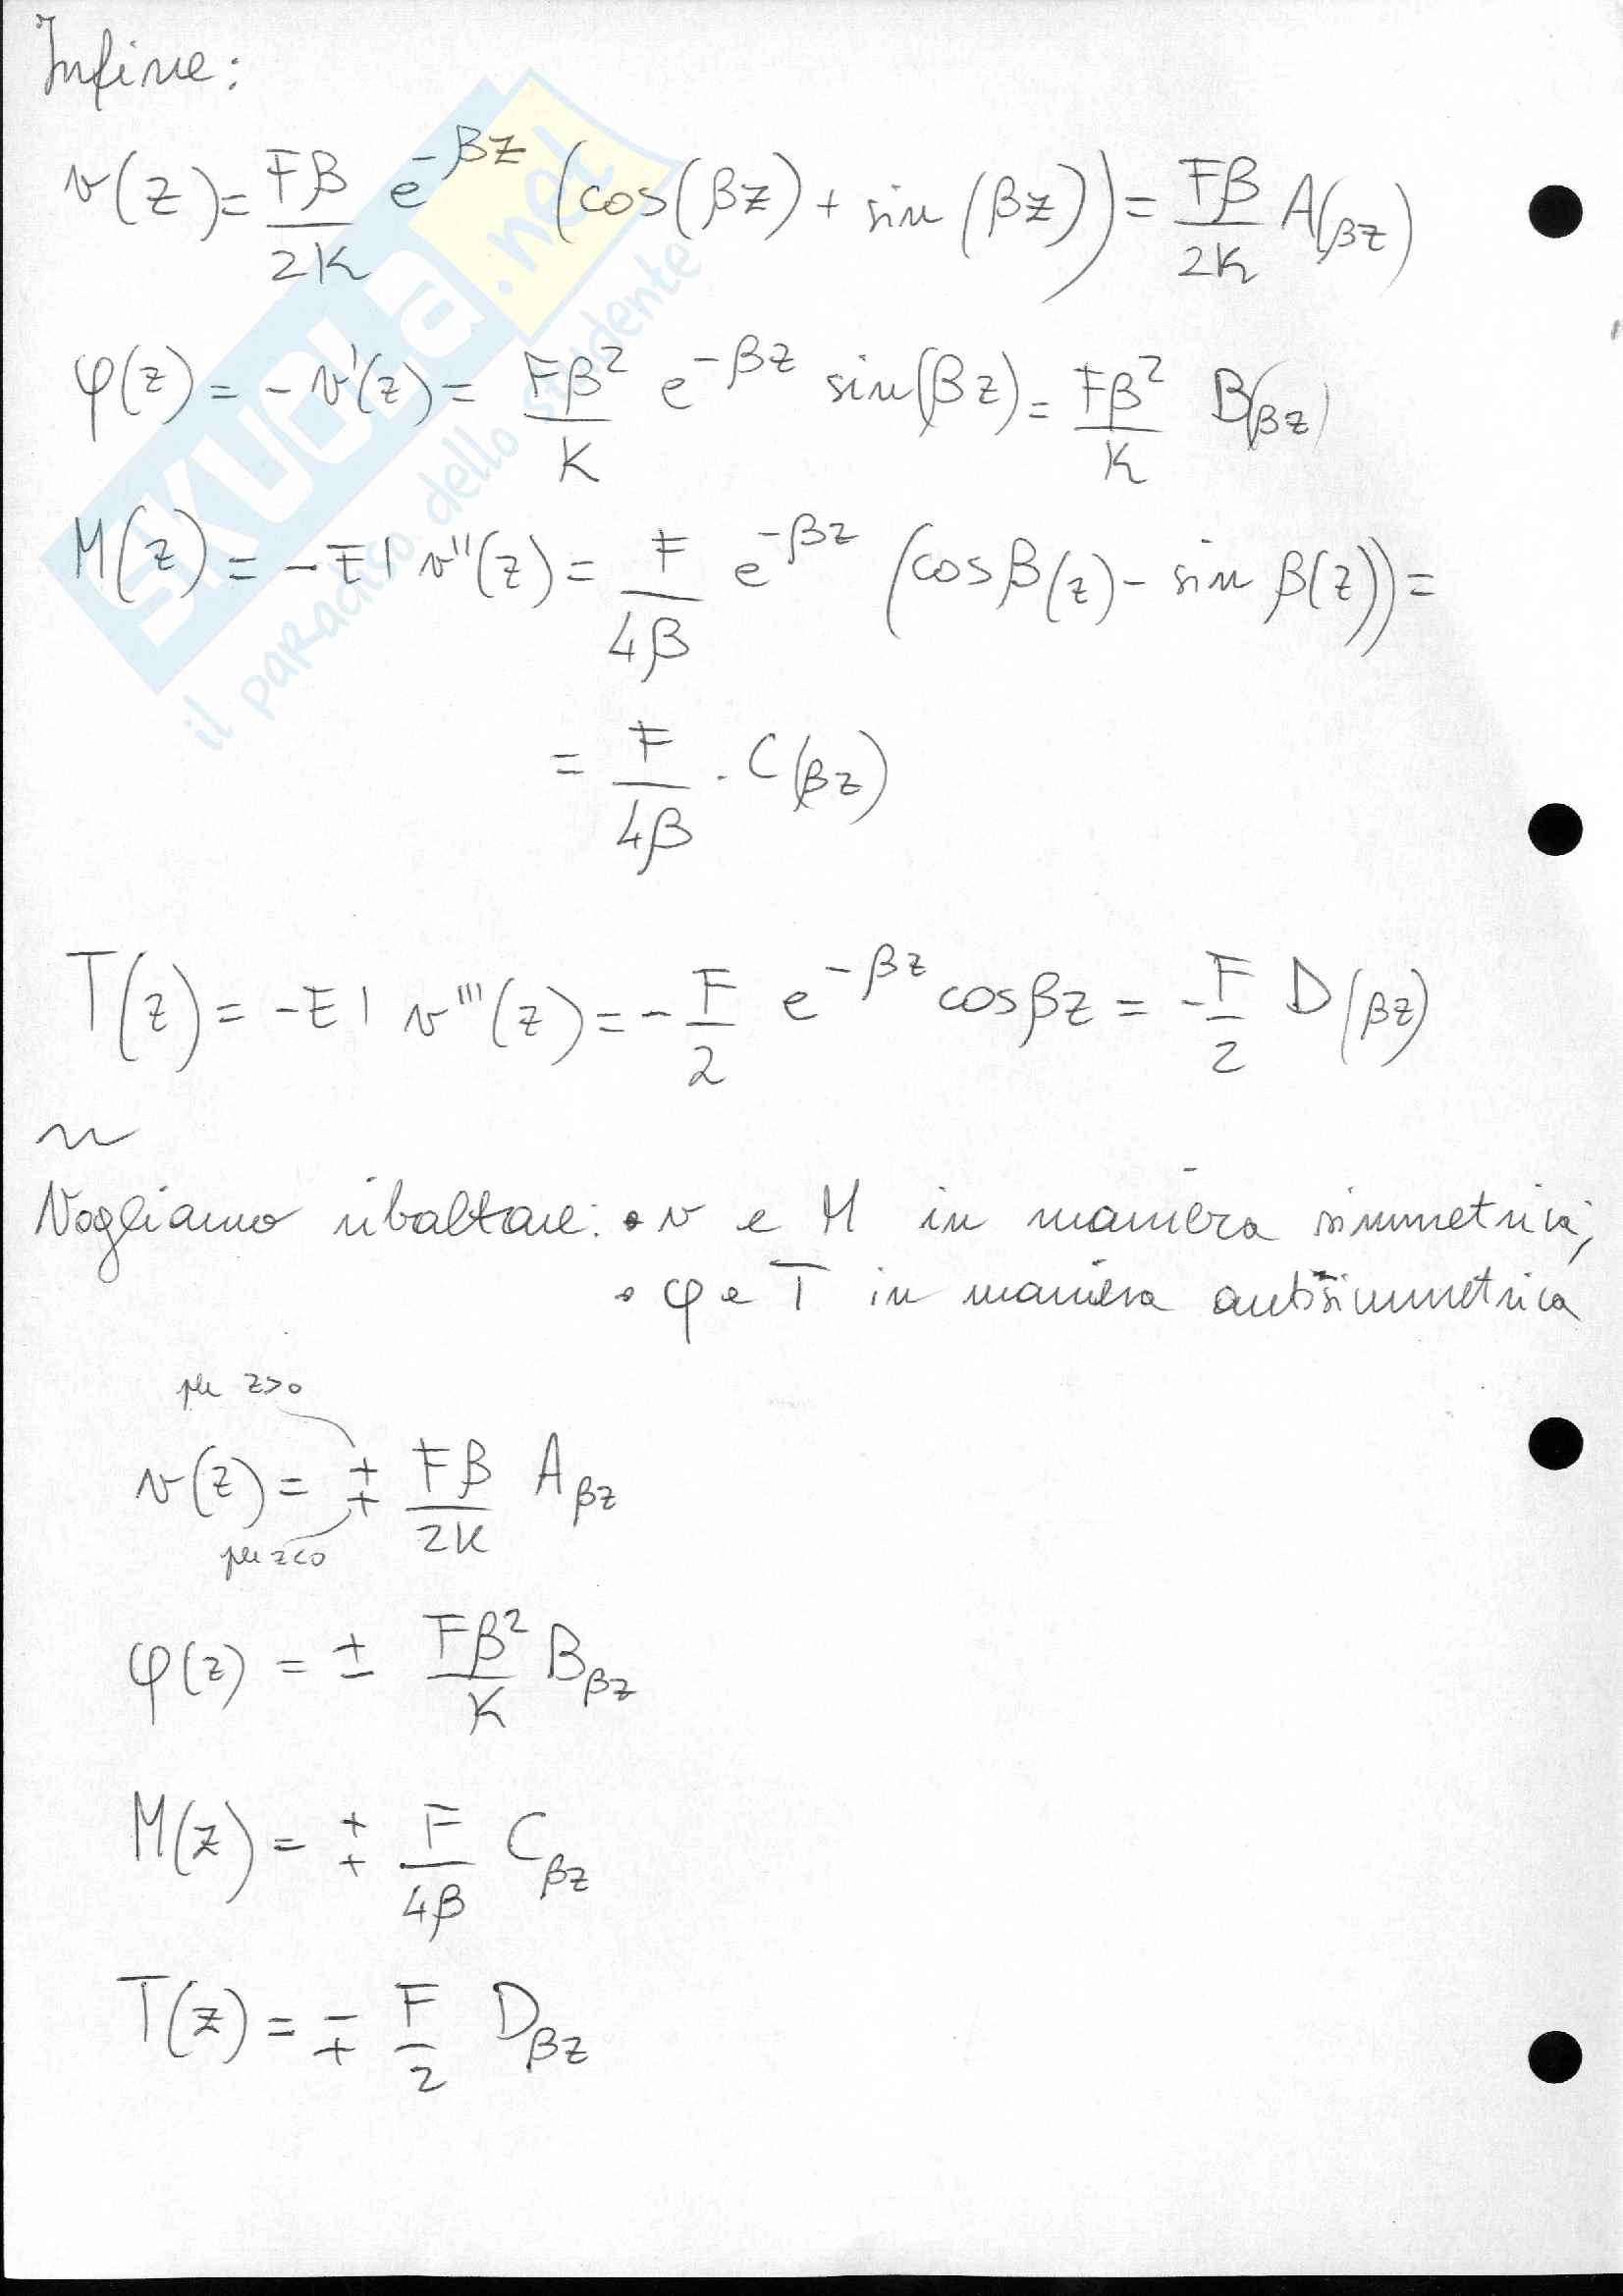 Infine:
v(z) = Fβ/2K e^-βz (cos(βz) + sin(βz)) = Fβ/2K A(βz)
φ(z) = - v'(z) = Fβ²/K e^-βz sin(βz) = Fβ²/K B(βz)
M(z) = -EI v''(z) = F/4β e^-βz (cos β(z) - sin β(z)) =
= F/4β · C(βz)
T(z) = -EI v'''(z) = - F/2 e^-βz cos βz = - F/2 D(βz)
Vogliamo ribaltare: • v e M in maniera simmetrica,
• φ e T in maniera antisimmetrica
per z>0
v(z) = + + Fβ/2K A βz
per z<0
φ(z) = ± Fβ²/K B βz
M(z) = + + F/4β C βz
T(z) = ∓ F/2 D βz
SKUOLA.net
il paradiso dello studente